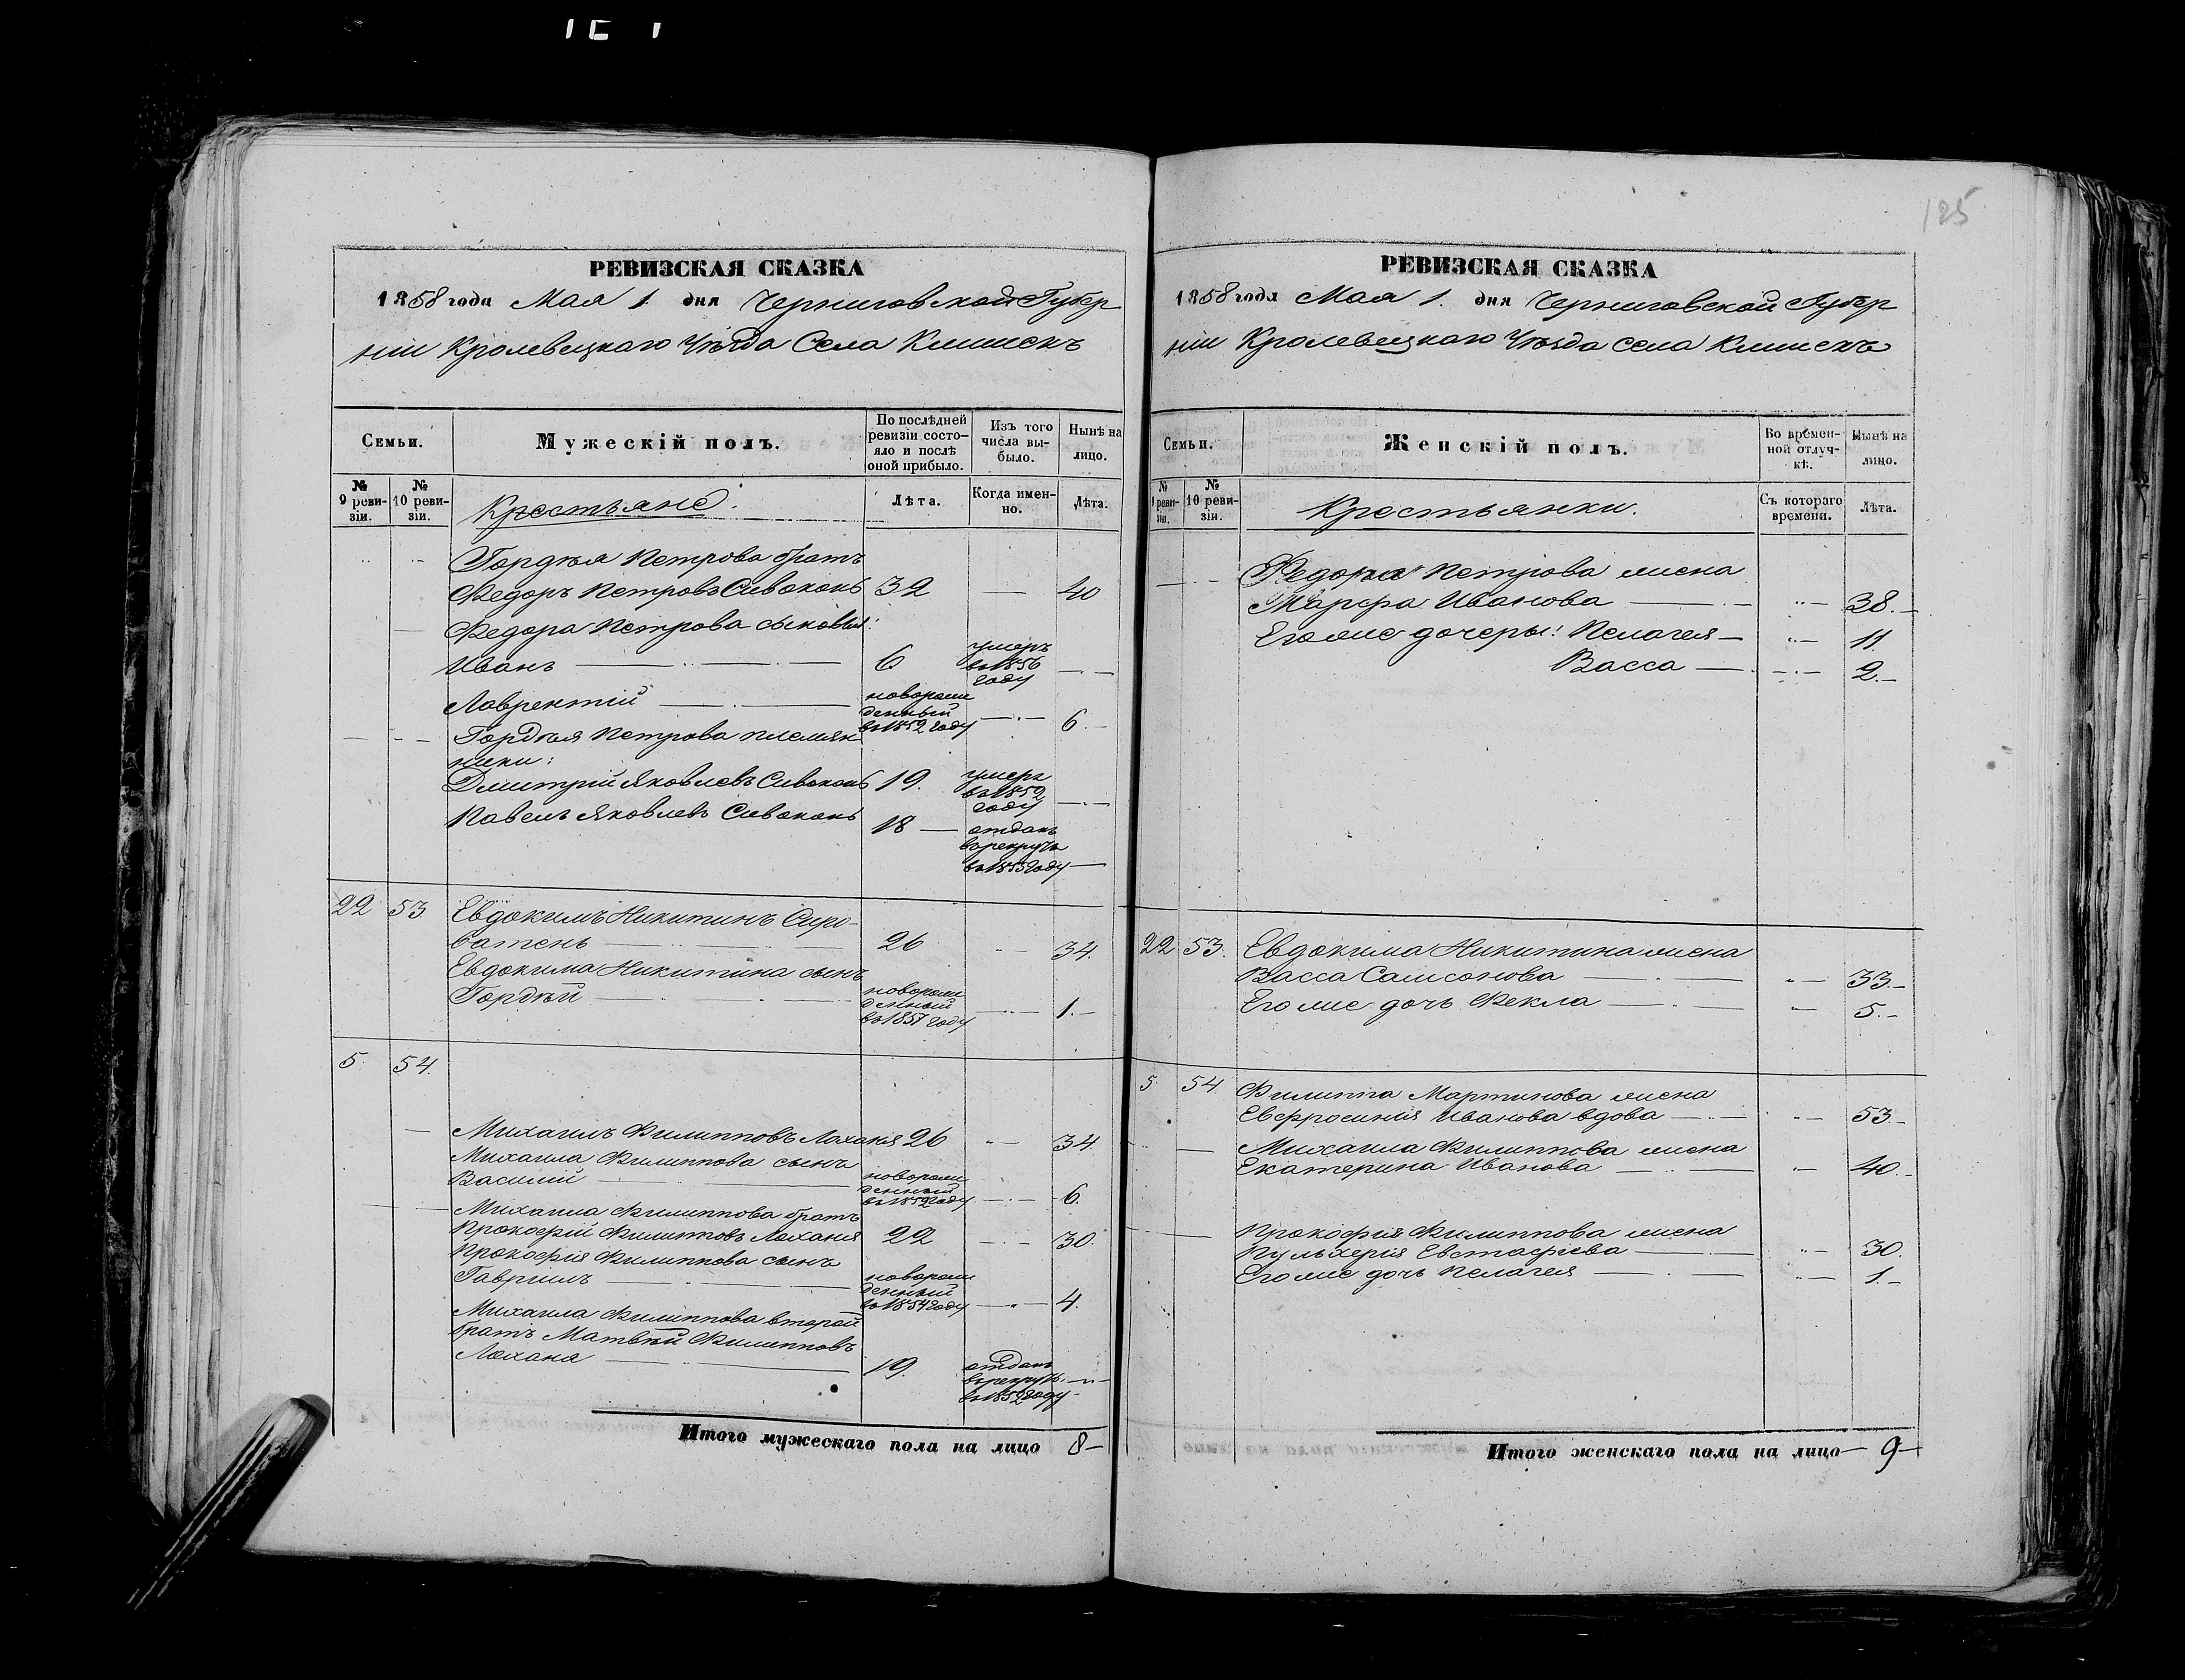 125
РЕВИЗСКАЯ СКАЗКА
1858 года Мая 1. дня Черниговской Губер
ніи Кролевецкаго Уѣзда Села Клишекъ
Семьи.
Мужескій полъ.
По послѣдней
ревизіи состо-
яло и послѣ
оной прибыло.
Изъ того
числа вы-
было.
Нынѣ на
лицо.
№
9 реви-
зіи.
№
10 реви-
зіи.
Крестьяне.
Лѣта.
Когда имен-
но.
Лѣта.
Гордѣя Петрова братъ
Федоръ Петровъ Сивоконь 32 — 40
Федора Петрова сыновья:
Иванъ — 6 умеръ
въ 1856
году
Лаврентій — новорож
денный
въ 1852 году — 6.
Гордѣя Петрова племян
ники:
Дмитрій Яковлевъ Сивоконь 19. умеръ
въ 1852
году
Павелъ Яковлевъ Сивоконь 18 — отданъ
въ рекруты
въ 1855 году —
22 53. Евдокимъ Никитинъ Сиро-
ватень — 26 34.
Евдокима Никитина сынъ
Гордѣй — новорож
денный
въ 1857 году — 1.
5. 54.
Михаилъ Филипповъ Лоханя 26 34
Михаила Филиппова сынъ
Василій — новорож
денный
въ 1852 году — 6.
Михаила Филиппова братъ
Прокофій Филипповъ Лоханя 22 — 30.
Прокофія Филиппова сынъ
Гавріилъ — новорож
денный
въ 1854 году — 4.
Михаила Филиппова второй
братъ Матвѣй Филипповъ
Лохана — 19. отданъ
въ рекруты
въ 1852 году
Итого мужескаго пола на лицо 8—
РЕВИЗСКАЯ СКАЗКА
1858 года Мая 1. дня Черниговской Губер
ніи Кролевецкаго Уѣзда Села Клишекъ
Семьи.
Женскій полъ.
Во времен-
ной отлуч-
кѣ.
Нынѣ на
лицо.
№
9 реви-
зіи.
№
10 реви-
зіи.
Крестьянки.
Съ котораго
времени.
Лѣта.
Федора Петрова жена
Марфа Иванова — 38.
Его же дочеры: Пелагея — 11
Васса — 2.
22 53. Евдокима Никитина жена
Васса Самсонова — 33.
Его же дочь Фекла — 5.
5. 54. Филиппа Мартинова жена
Евфросинія Иванова вдова — 53.
Михаила Филиппова жена
Екатерина Иванова — 40.
Прокофія Филиппова жена
Пульхерія Евстафіева — 30.
Его же дочь Пелагея — 1.
Итого женскаго пола на лицо — 9—